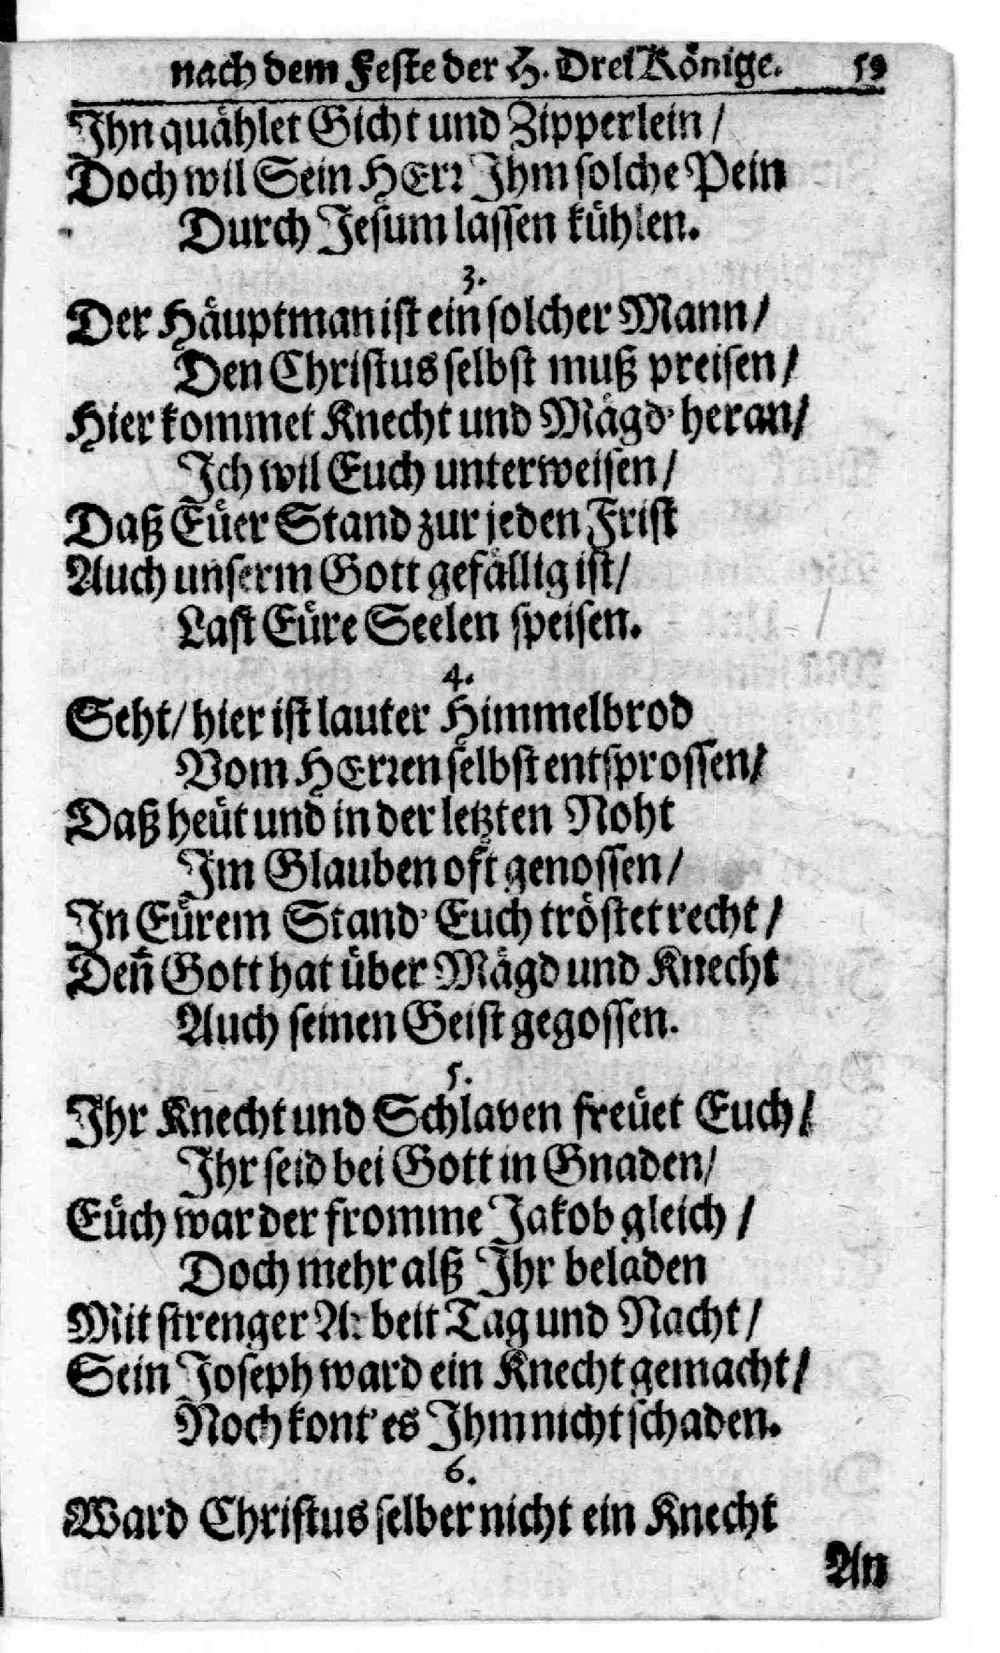 nach dem Feste der H. Drei Könige. 59
Ihn quählet Gicht und Zipperlein /
Doch wil Sein HErr Ihm solche Pein
Durch Jesum lassen kühlen.
3.
Der Häuptman ist ein solcher Mann /
Den Christus selbst muß preisen /
Hier kommet Knecht und Mägd' heran /
Ich wil Euch unterweisen /
Daß Eüer Stand zur jeden Frist
Auch unserm Gott gefällig ist /
Last Eüre Seelen speisen.
4.
Seht / hier ist lauter Himmelbrod
Vom HErren selbst entsprossen /
Daß heüt und in der letzten Noht
Im Glauben oft genossen /
In Eürem Stand' Euch tröstet recht /
Deñ Gott hat über Mägd und Knecht
Auch seinen Geist gegossen.
5.
Ihr Knecht und Schlaven freüet Euch /
Ihr seid bei Gott in Gnaden /
Eüch war der fromme Jakob gleich /
Doch mehr alß Ihr beladen
Mit strenger Arbeit Tag und Nacht /
Sein Joseph ward ein Knecht gemacht /
Noch kont' es Ihm nicht schaden.
6.
Ward Christus selber nicht ein Knecht
An